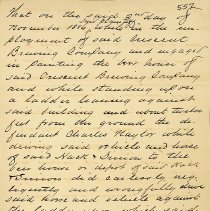 557
That on the said 2nd day of
November 1896 while in the em-
ployment of said Crescent
Brewing Company and engaged
in painting the box house of
said Crescent Brewing Company
and while standing upon
a ladder leaning against
said building and about twelve
feet from the ground the de-
fendant Charles Naylor while
driving said vehicle and horse
of said & to the
house or depot of said
& did carelessly neg-
ligently and wrongfully drive
said horse and vehicle against